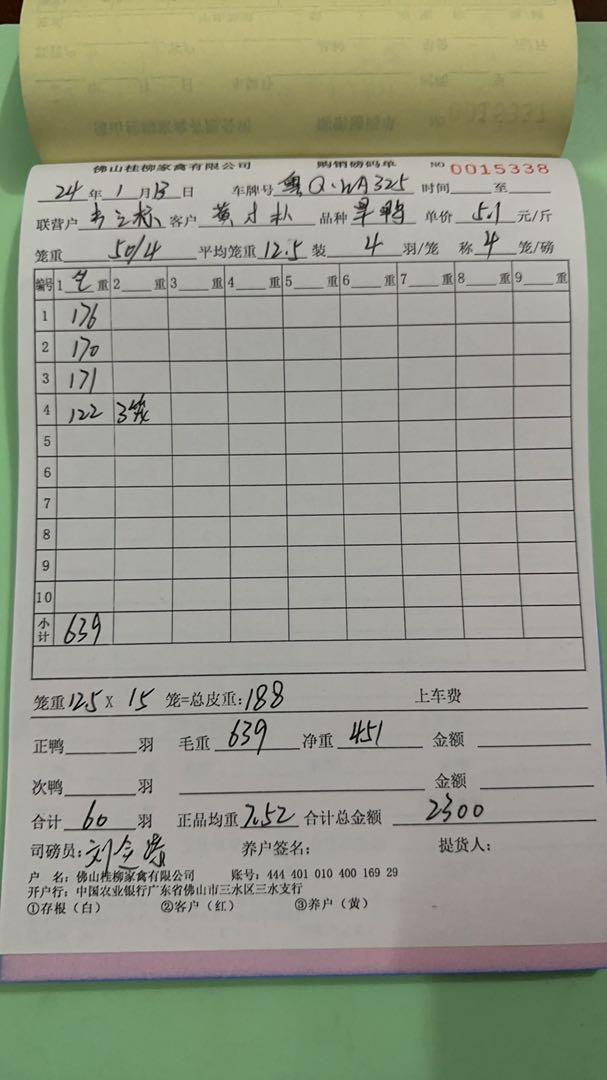 佛山桂柳家禽有限公司 购销磅码单 NO 0015338
24 年 1 月 13 日 车牌号 粤Q·WA325 时间 至
联营户 客户 黄 品种 旱鸭 单价 5.1 元/斤
笼重 50/4 平均笼重 12.5 装 4 羽/笼 称 4 笼/磅
编号 1 毛 重 2 重 3 重 4 重 5 重 6 重 7 重 8 重 9 重
1 176
2 170
3 171
4 122 3笼
5
6
7
8
9
10
小计 639
笼重 12.5 X 15 笼=总皮重: 188 上车费
正鸭 羽 毛重 639 净重 451 金额
次鸭 羽 金额
合计 60 羽 正品均重 7.52 合计总金额 2300
司磅员: 刘 养户签名: 提货人:
户 名: 佛山桂柳家禽有限公司 账号: 444 401 010 400 169 29
开户行: 中国农业银行广东省佛山市三水区三水支行
①存根（白） ②客户（红） ③养户（黄）